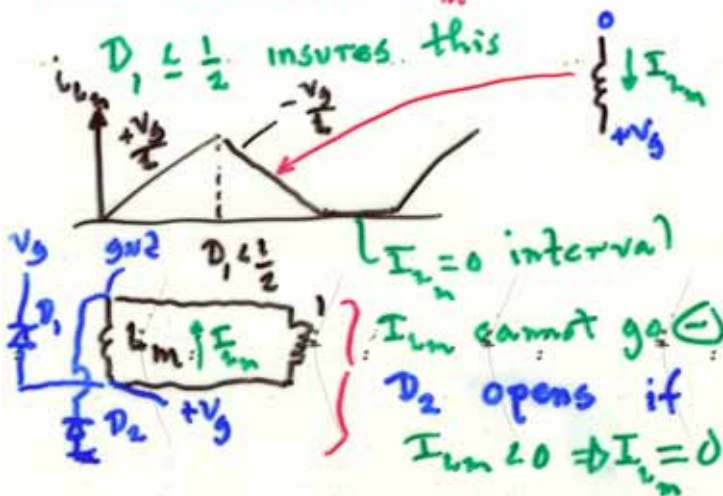 m
D₁ ≤ 1/2 insures this
i_Lm
+Vg/L
-Vg/L
0
↓ I_Lm
+Vg
D₁ < 1/2
I_Lm = 0 interval
Vg
gnd
D₁
Lm ↑ I_Lm
1
D₂
+Vg
I_Lm cannot go ⊖
D₂ opens if
I_Lm < 0 ⇒ I_Lm = 0